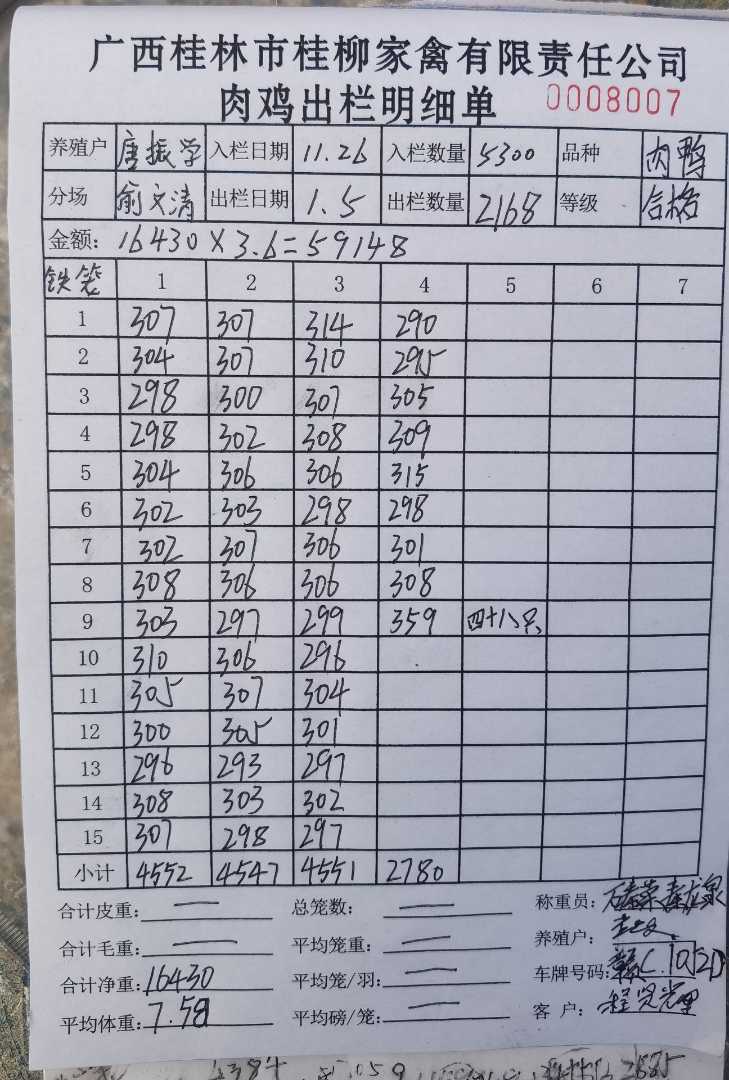 广西桂林市桂柳家禽有限责任公司
肉鸡出栏明细单 0008007
养殖户 唐振学 入栏日期 11.26 入栏数量 5300 品种 肉鸭
分场 俞文清 出栏日期 1.5 出栏数量 2168 等级 合格
金额: 16430×3.6=59148
铁笼 1 2 3 4 5 6 7
1 307 307 314 290
2 304 307 310 295
3 298 300 307 305
4 298 302 308 309
5 304 306 306 315
6 302 303 298 298
7 302 307 306 301
8 308 306 306 308
9 303 297 299 359 四十八只
10 310 306 296
11 305 307 304
12 300 305 301
13 296 293 297
14 308 303 302
15 307 298 297
小计 4552 4547 4551 2780
合计皮重: — 总笼数: — 称重员:
合计毛重: — 平均笼重: — 养殖户:
合计净重: 16430 平均笼/羽: — 车牌号码:
平均体重: 7.58 平均磅/笼: — 客 户: